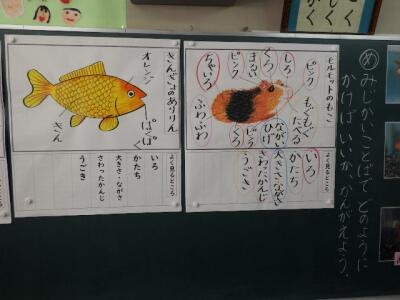 めみじかいことばでどのように
かけばいいか、かんがえよう。
モルモットのもこ
ピンク
しろ
くろ
まるい
ピンク
ちゃいろ
もぐもぐ
たべる
ながい
ひげ
ピンク
くろ
ふわふわ
よく見るところ
いろ
かたち
大きさ・ながさ
さわったかんじ
うごき
きんぎょのありりん
オレンジ
ぱくぱく
きん
よく見るところ
いろ
かたち
大きさ・ながさ
さわったかんじ
うごき